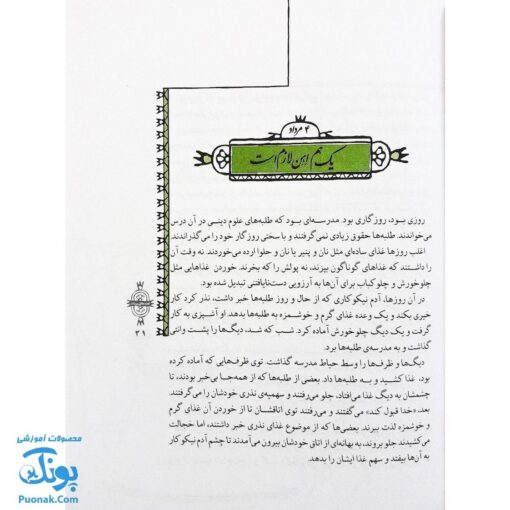 ۴ مرداد
یک هم اهن لازم است
روزی بود، روزگاری بود. مدرسه‌ای بود که طلبه‌های علوم دینی در آن درس
می‌خواندند. طلبه‌ها حقوق زیادی نمی‌گرفتند و با سختی روزگار خود را می‌گذراندند.
اغلب روزها غذای ساده‌ای مثل نان و پنیر یا نان و حلوا ارده می‌خوردند. نه وقت آن
را داشتند که غذاهای گوناگون بپزند، نه پولش را که بخرند. خوردن غذاهایی مثل
چلوخورش و چلوکباب برای آن‌ها به آرزویی دست‌نایافتنی تبدیل شده بود.
در آن روزها، آدم نیکوکاری که از حال و روز طلبه‌ها خبر داشت، نذر کرد کار
خیری بکند و یک وعده غذای گرم و خوشمزه به طلبه‌ها بدهد. او آشپزی به کار
گرفت و یک دیگ چلوخورش آماده کرد. شب که شد، دیگ‌ها را پشت وانتی
گذاشت و به مدرسه‌ی طلبه‌ها برد.
دیگ‌ها و ظرف‌ها را وسط حیاط مدرسه گذاشت. توی ظرف‌هایی که آماده کرده
بود، غذا کشید و به طلبه‌ها داد. بعضی از طلبه‌ها که از همه‌جا بی‌خبر بودند، تا
چشمشان به دیگ غذا می‌افتاد، جلو می‌رفتند و سهمیه‌ی نذری خودشان را می‌گرفتند.
بعد، «خدا قبول کند» می‌گفتند و می‌رفتند توی اتاقشان تا از خوردن آن غذای گرم
و خوشمزه لذت ببرند. بعضی‌ها که از موضوع غذای نذری خبر داشتند، اما خجالت
می‌کشیدند جلو بروند، به بهانه‌ای از اتاق خودشان بیرون می‌آمدند تا چشم آدم نیکوکار
به آن‌ها بیفتد و سهم غذا ایشان را بدهد.
۳۹
محصولات آموزشی
پونک
Puonak.Com